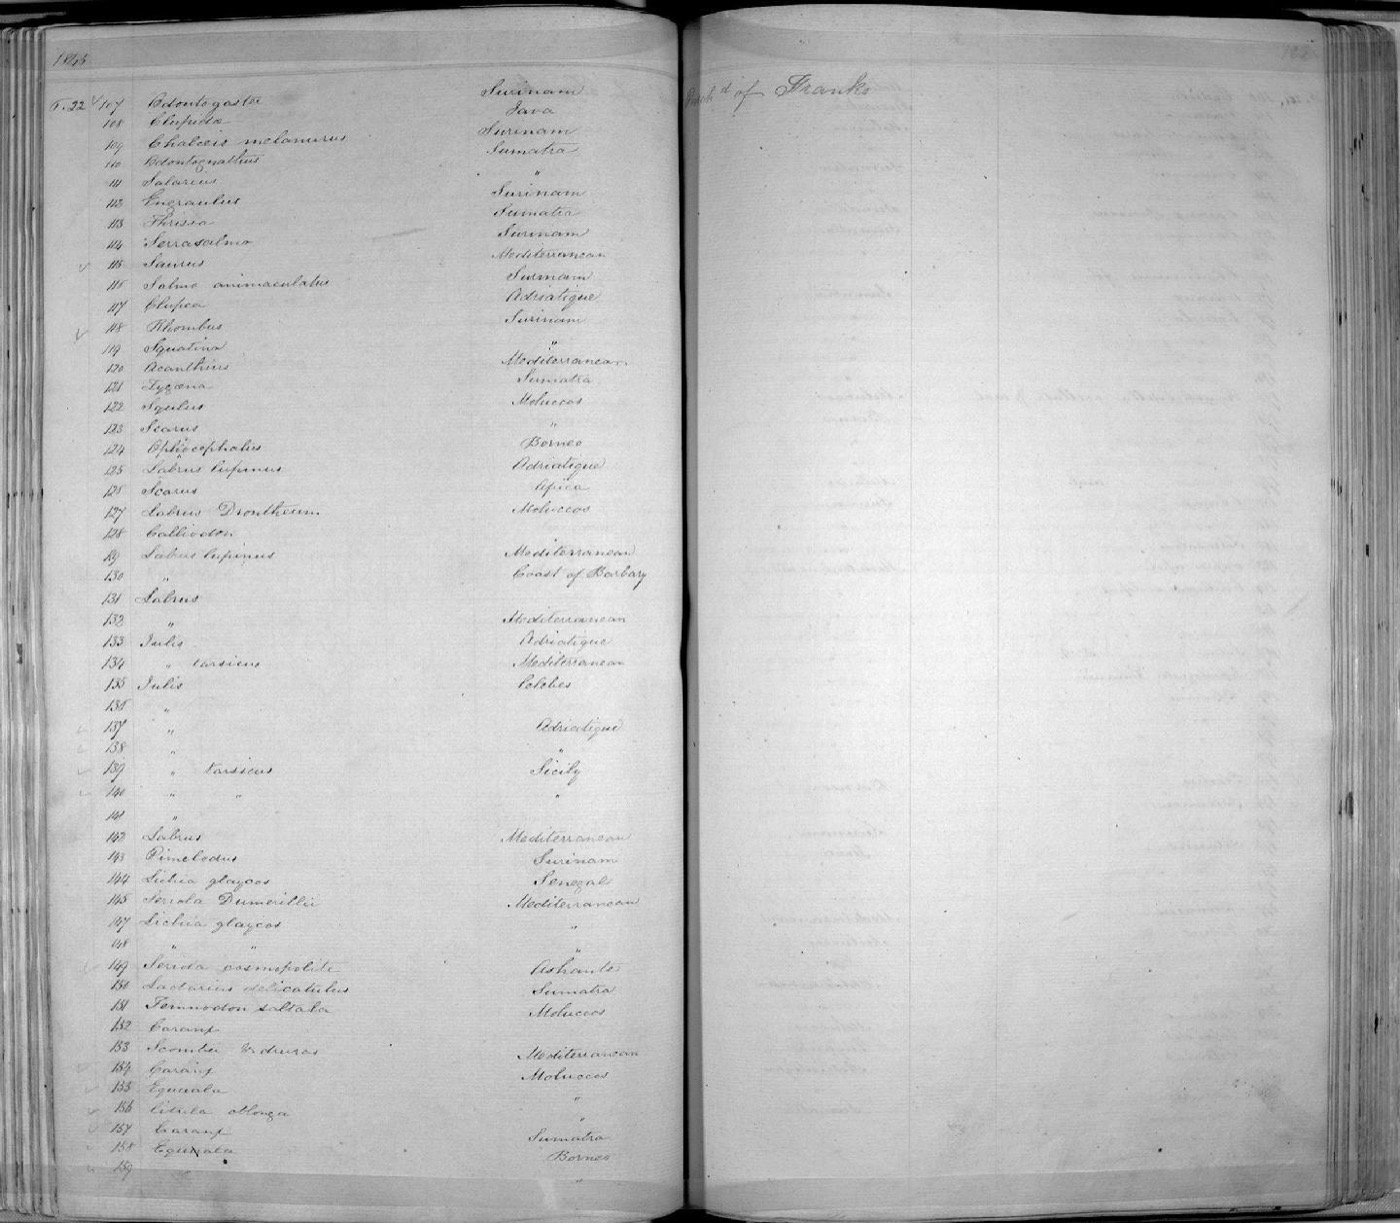 1845
6.22 107 Odontogaster Surinam Purchd of Franks
108 Clupidæ Java
109 Chalceis melanurus Surinam
110 Odontognathus Sumatra
111 Salarius "
112 Engraulus Surinam
113 Thrissa Sumatra
114 Serrasalmo Surinam
115 Saurus Mediterranean
116 Salmo animaculatus Surinam
117 Clupea Adriatique
118 Rhombus Surinam
119 Squatina "
120 Acanthius Mediterranean
121 Zygæna Sumatra
122 Squlus Moluccos
123 Scarus "
124 Ophiocephalus Borneo
125 Labrus lupinus Adriatique
126 Scarus
127 Labrus Moluccos
128 Calliodon
129 Labrus lupinus Mediterranean
130 " Coast of Barbary
131 Labrus
132 " Mediterranean
133 Julis Adriatique
134 " tarsicus Mediterranean
135 Julis
136 "
137 " Adriatique
138 " "
139 " tarsicus Sicily
140 " " "
141 "
142 Labrus Mediterranean
143 Pimelodus Surinam
144 Lichia glaycos Senegal
145 Seriola Dumerillii Mediterranean
147 Lichia glaycos "
148 " " "
149 Seriola cosmopolite Ashante
150 Lactarius delicatulus Sumatra
151 Temnodon saltata Moluccos
152 Caranx
153 Mediterranean
154 Caranx Moluccos
155 Equuala "
156 oblonga "
157 Caranx Sumatra
158 Equuala Borneo
159 " "